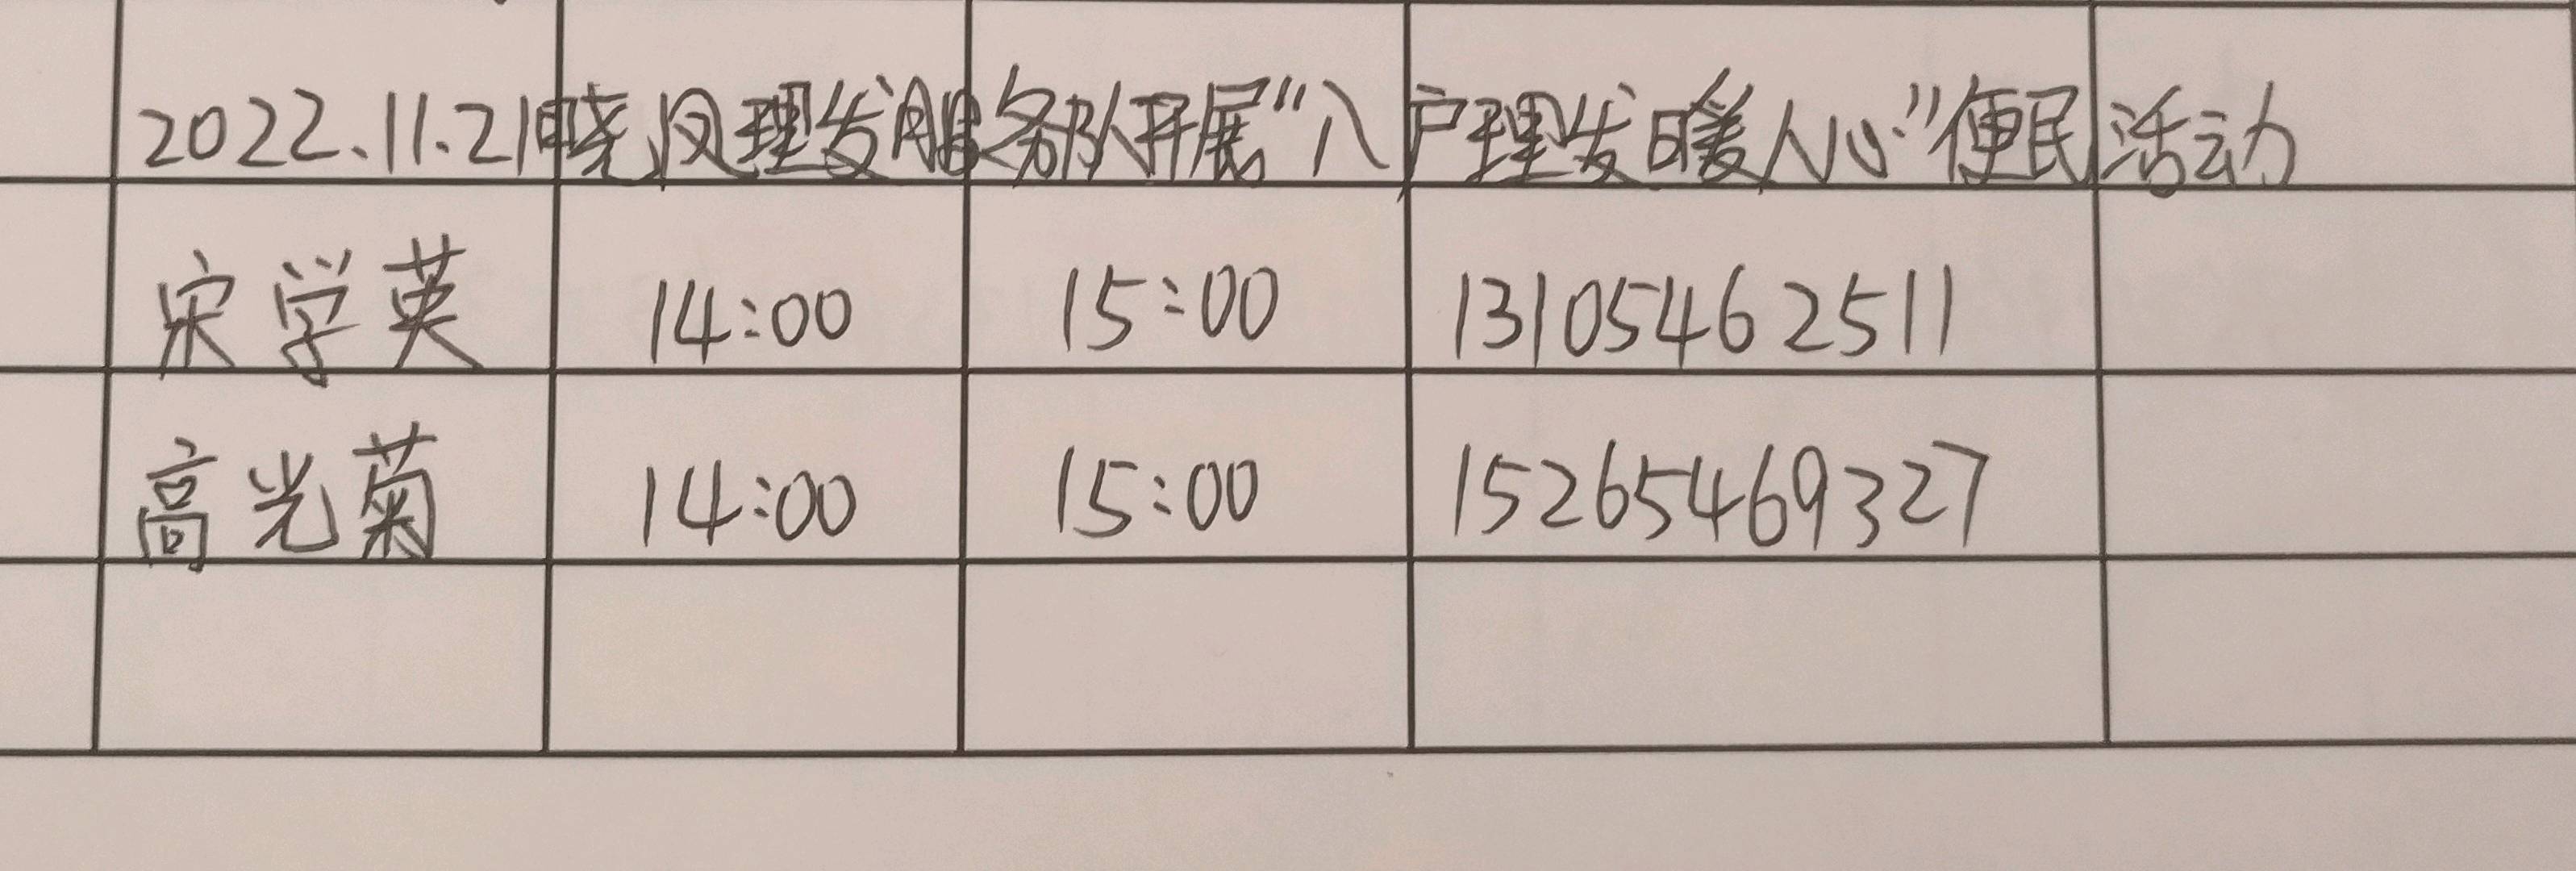 2022.11.21晓凤理发服务队开展“入户理发暖人心”便民活动
宋学英 14:00 15:00 13105462511
高光菊 14:00 15:00 15265469327